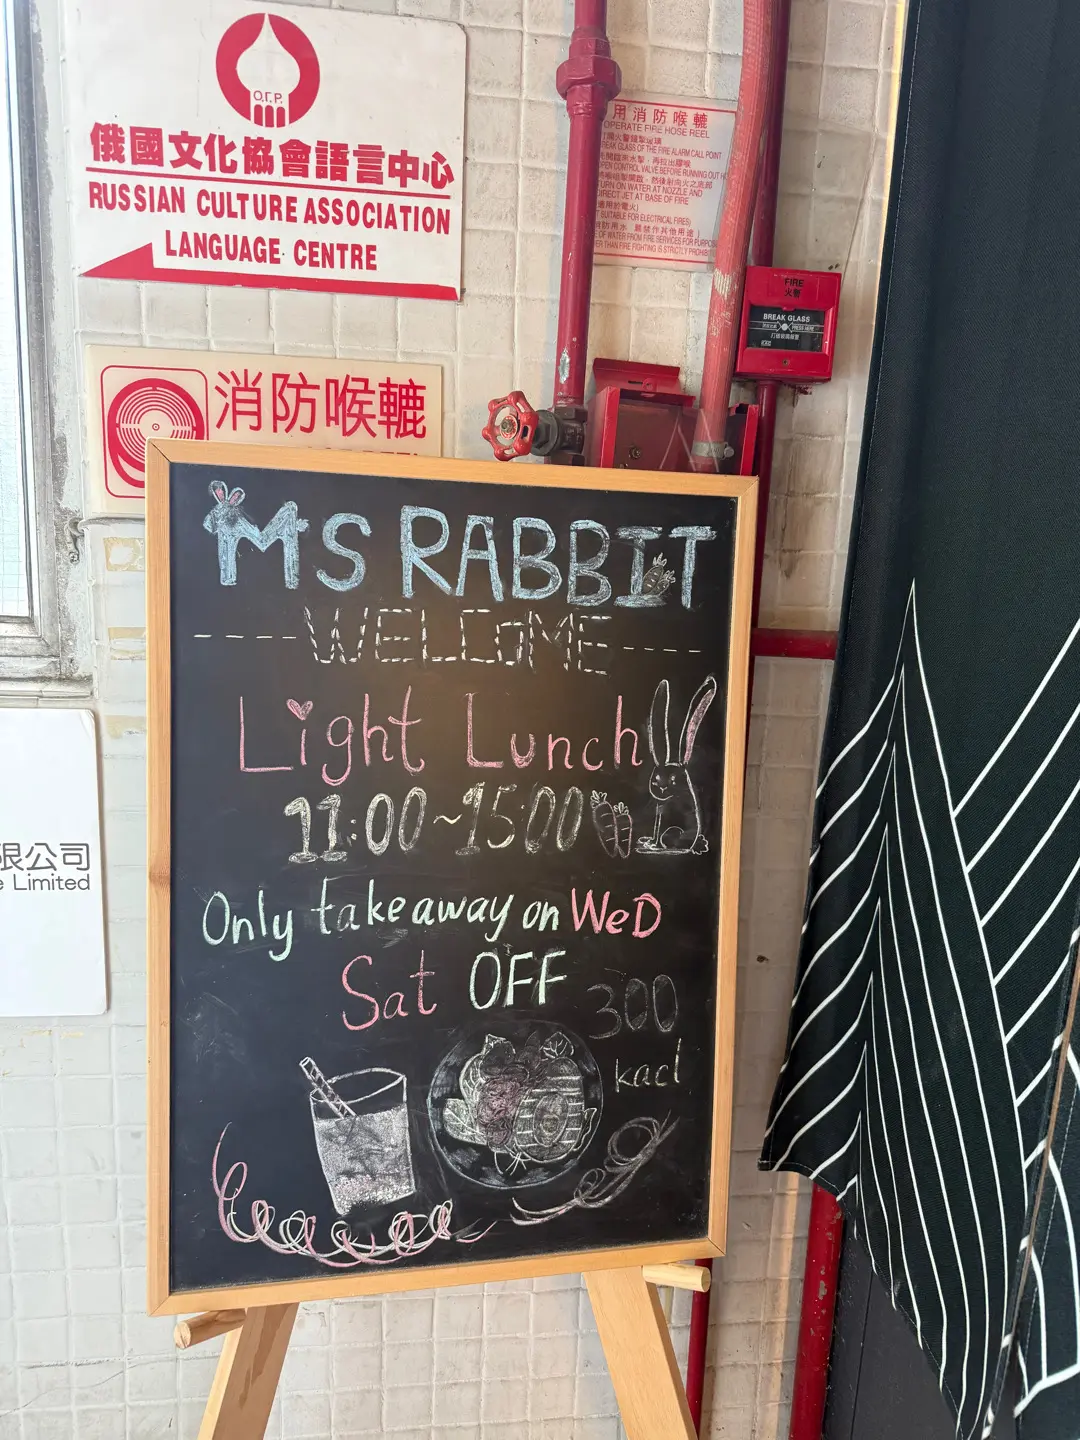 О.Г.Р.
俄國文化協會語言中心
RUSSIAN CULTURE ASSOCIATION
LANGUAGE CENTRE
用消防喉轆
OPERATE FIRE HOSE REEL
BREAK GLASS OF THE FIRE ALARM CALL POINT
OPEN CONTROL VALVE BEFORE RUNNING OUT
TURN ON WATER AT NOZZLE AND
DIRECT JET AT BASE OF FIRE
SUITABLE FOR ELECTRICAL FIRES)
OF WATER FROM FIRE SERVICES FOR
THAN FIRE FIGHTING IS STRICTLY
FIRE
火警
BREAK GLASS
PRESS HERE
消防喉轆
MS RABBIT
WELCOME
Light Lunch
11:00~15:00
Only takeaway on WeD
Sat OFF
300
kacl
限公司
Limited